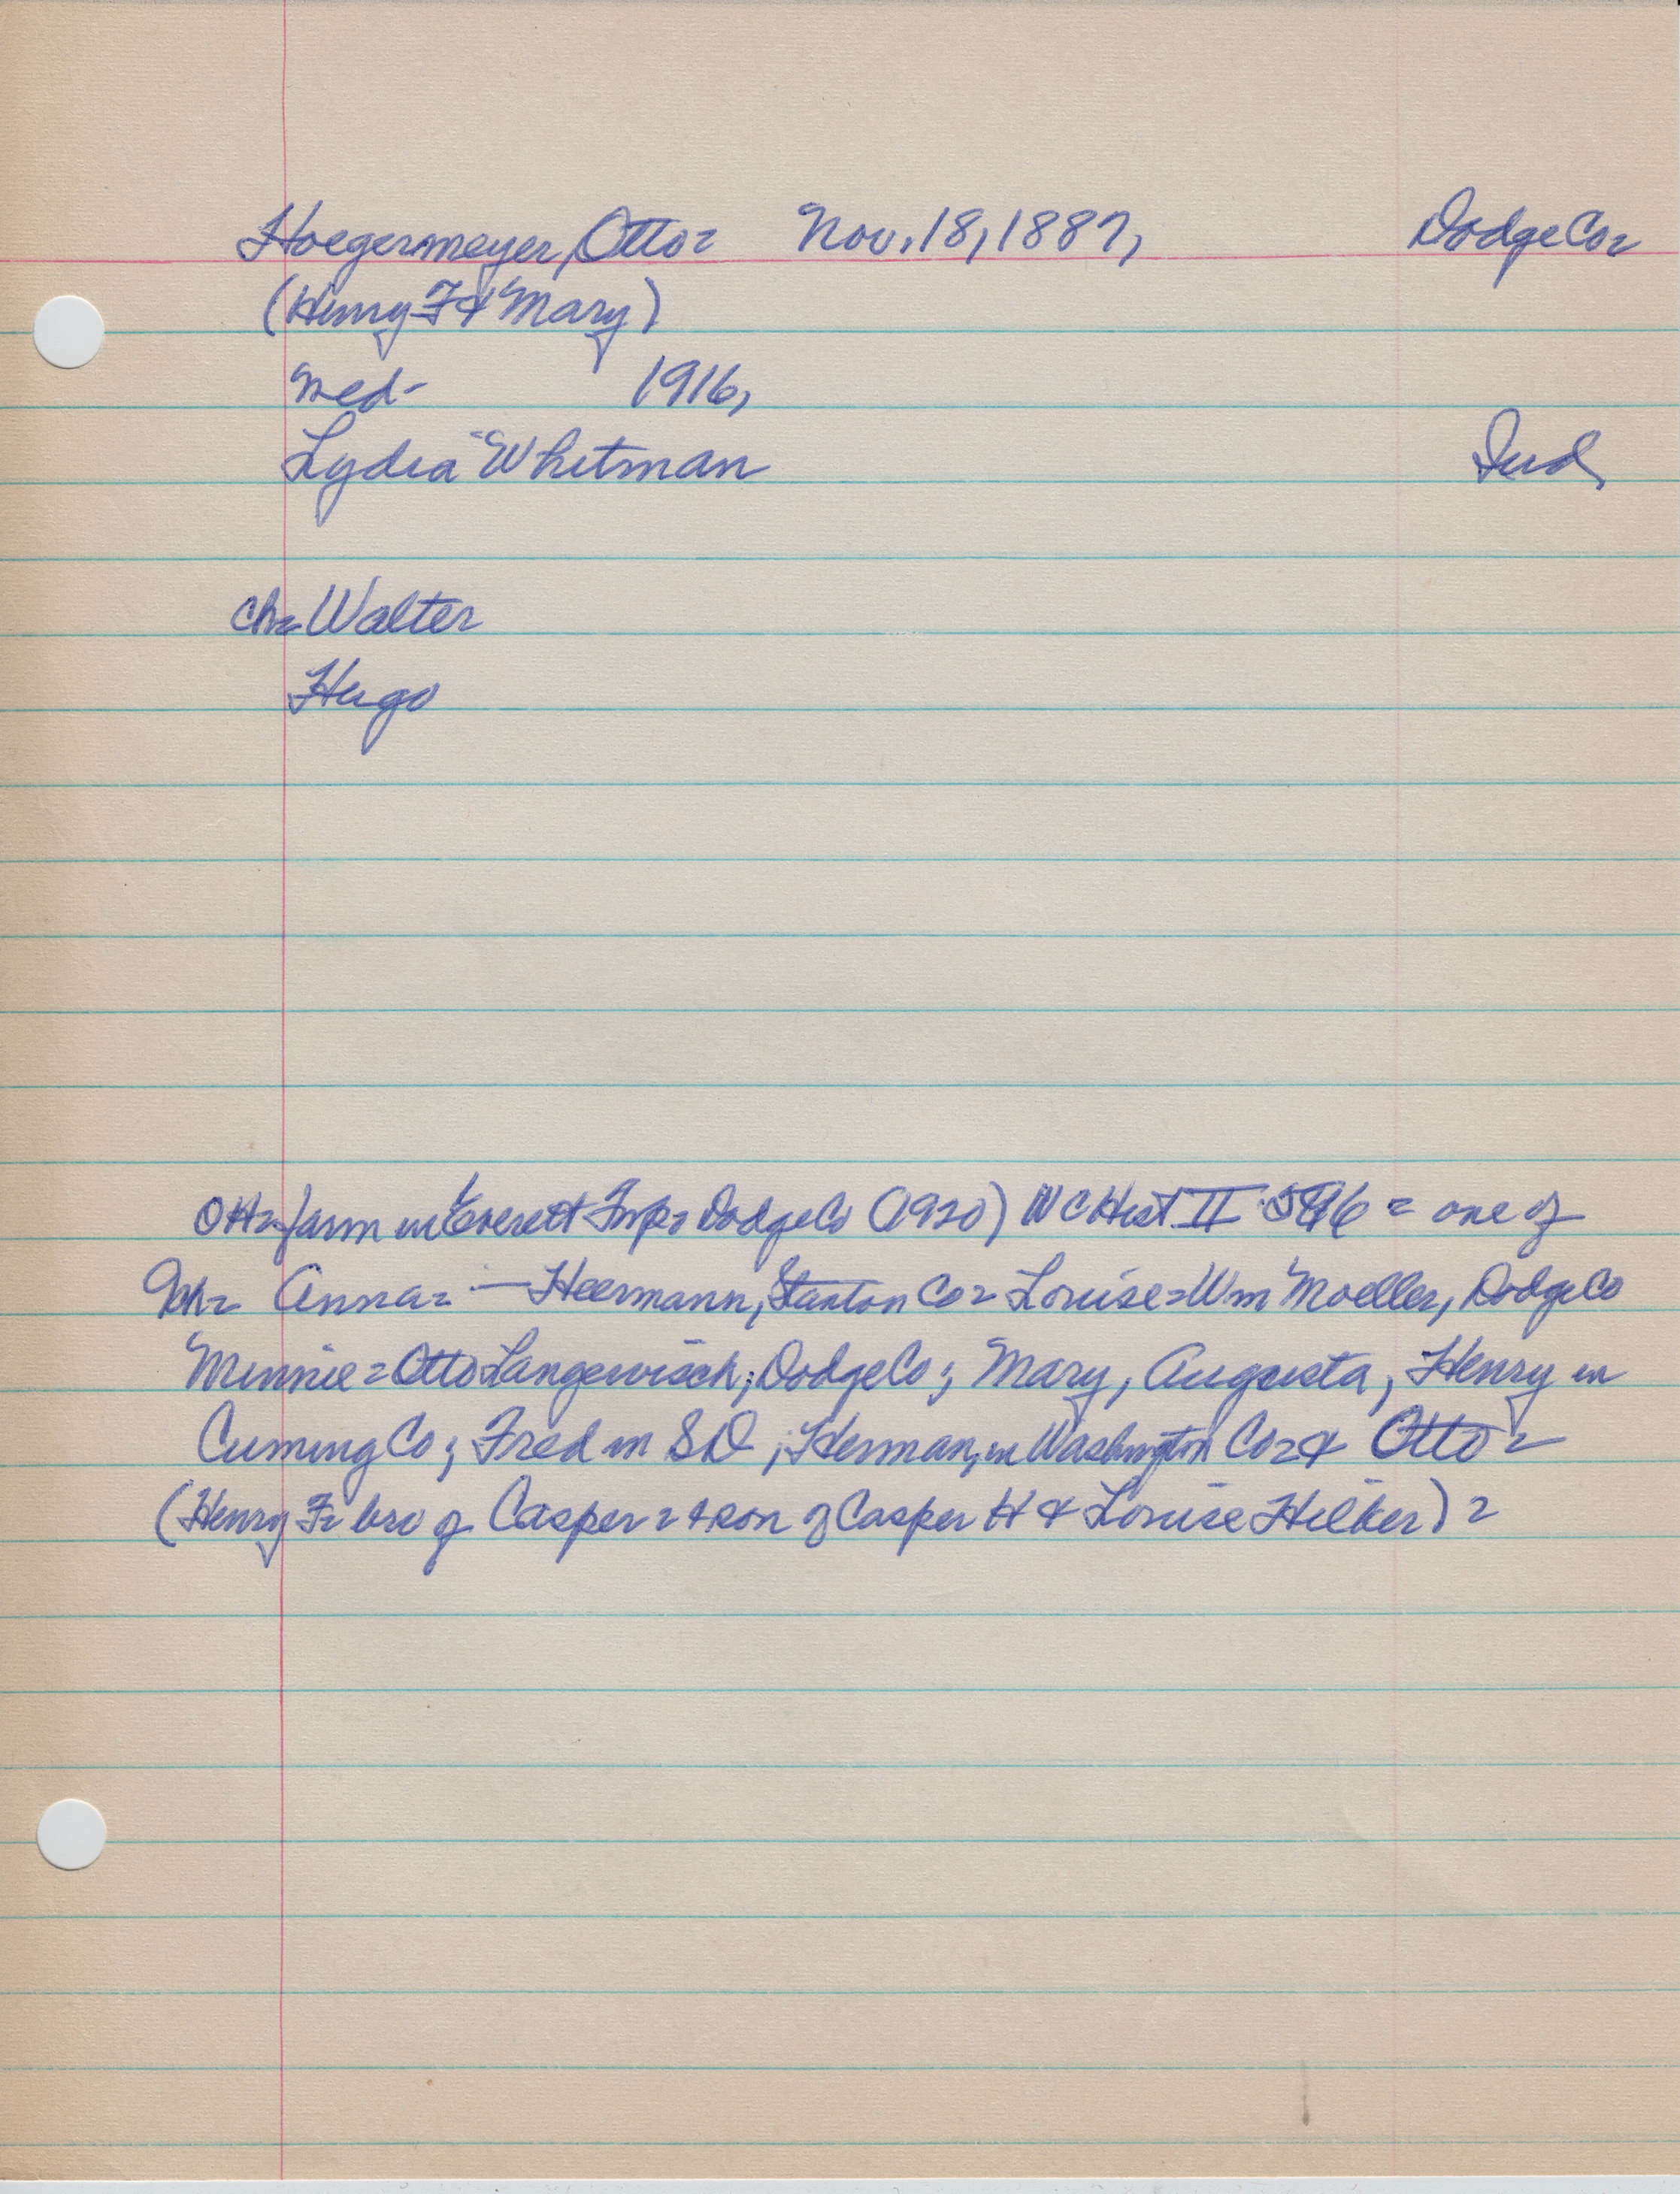 Hoegermeyer, Otto = Nov. 18, 1887, Dodge Co =
(Henry F & Mary)
med - 1916,
Lydia Whitman Ind,
ch = Walter
Hugo
Ott = farm in Everett Twp = Dodge Co (1920) NC Hist II 596 = one of
9 ch = Anna = — Heermann, Stanton Co = Louise = Wm Moeller, Dodge Co
Minnie = Otto Langewisch; Dodge Co; Mary, Augusta, Henry in
Cuming Co; Fred in SD; Herman, in Washington Co = & Otto =
(Henry F = bro of Casper = & son of Casper H & Louise Hilker) =